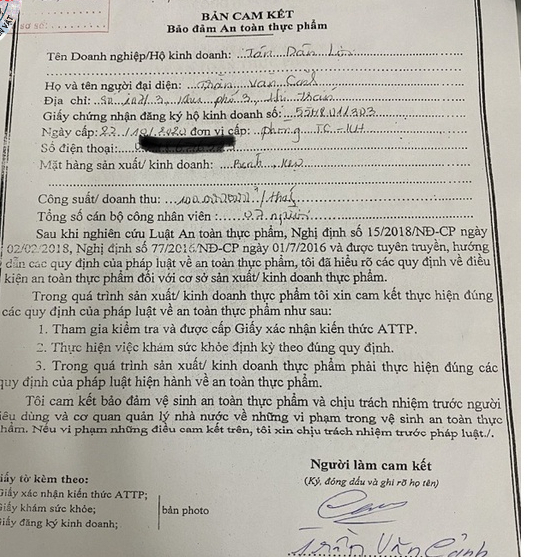 BẢN CAM KẾT
Bảo đảm An toàn thực phẩm
Tên Doanh nghiệp/Hộ kinh doanh: Tấn Dần
Họ và tên người đại diện: Trần Văn Cảnh
Địa chỉ: khu phố 3,
Giấy chứng nhận đăng ký hộ kinh doanh số:
Ngày cấp: 22/10/2020 đơn vị cấp: phòng TC-KH
Số điện thoại:
Mặt hàng sản xuất/ kinh doanh: Bánh, kẹo
Công suất/ doanh thu: /tháng
Tổng số cán bộ công nhân viên : người
Sau khi nghiên cứu Luật An toàn thực phẩm, Nghị định số 15/2018/NĐ-CP ngày
02/02/2018, Nghị định số 77/2016/NĐ-CP ngày 01/7/2016 và được tuyên truyền, hướng
dẫn các quy định của pháp luật về an toàn thực phẩm, tôi đã hiểu rõ các quy định về điều
kiện an toàn thực phẩm đối với cơ sở sản xuất/ kinh doanh thực phẩm.
Trong quá trình sản xuất/ kinh doanh thực phẩm tôi xin cam kết thực hiện đúng
các quy định của pháp luật về an toàn thực phẩm như sau:
1. Tham gia kiểm tra và được cấp Giấy xác nhận kiến thức ATTP.
2. Thực hiện việc khám sức khỏe định kỳ theo đúng quy định.
3. Trong quá trình sản xuất/ kinh doanh thực phẩm phải thực hiện đúng các
quy định của pháp luật hiện hành về an toàn thực phẩm.
Tôi cam kết bảo đảm vệ sinh an toàn thực phẩm và chịu trách nhiệm trước người
tiêu dùng và cơ quan quản lý nhà nước về những vi phạm trong vệ sinh an toàn thực
phẩm. Nếu vi phạm những điều cam kết trên, tôi xin chịu trách nhiệm trước pháp luật./.
Người làm cam kết
(Ký, đóng dấu và ghi rõ họ tên)
Giấy tờ kèm theo:
Giấy xác nhận kiến thức ATTP;
Giấy khám sức khỏe;
Giấy đăng ký kinh doanh;
bản photo
Trần Văn Cảnh